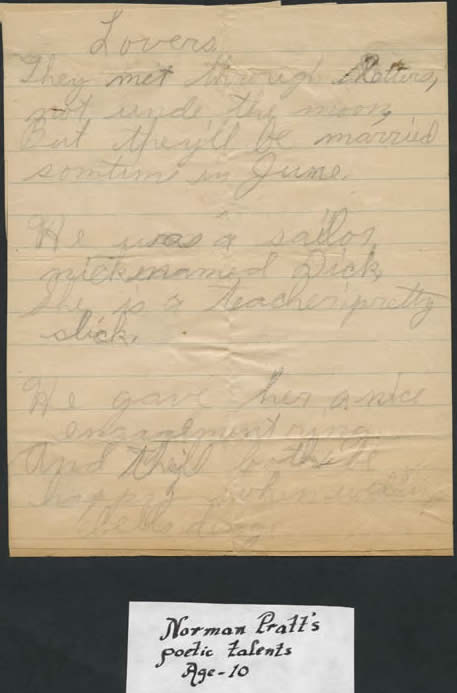 Lovers
They met through Matters,
not unde the moon,
But they'll be married
somtime in June.
He was a sailor
nickenamed Dick,
She is a teacher pretty
slick.
He gave her a nice
engagement ring
And they'll both be
happy when
Bells
Norman Pratt's
poetic talents
Age-10